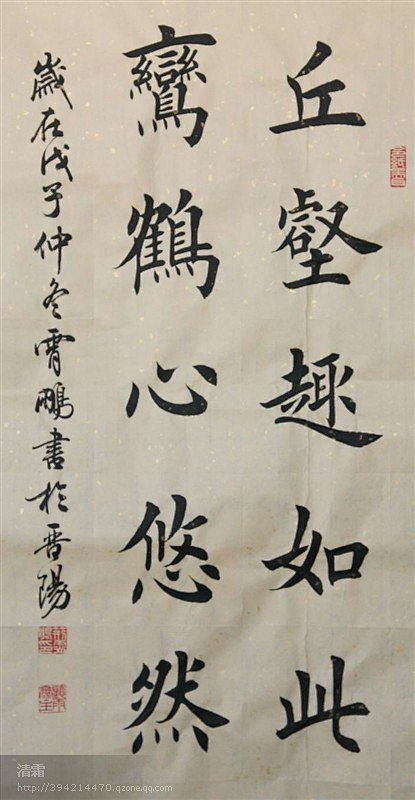 丘壑趣如此
鸞鶴心悠然
歲在戊子仲冬霄鵬書於晋陽
清霜
http://394214470.qzone.qq.com